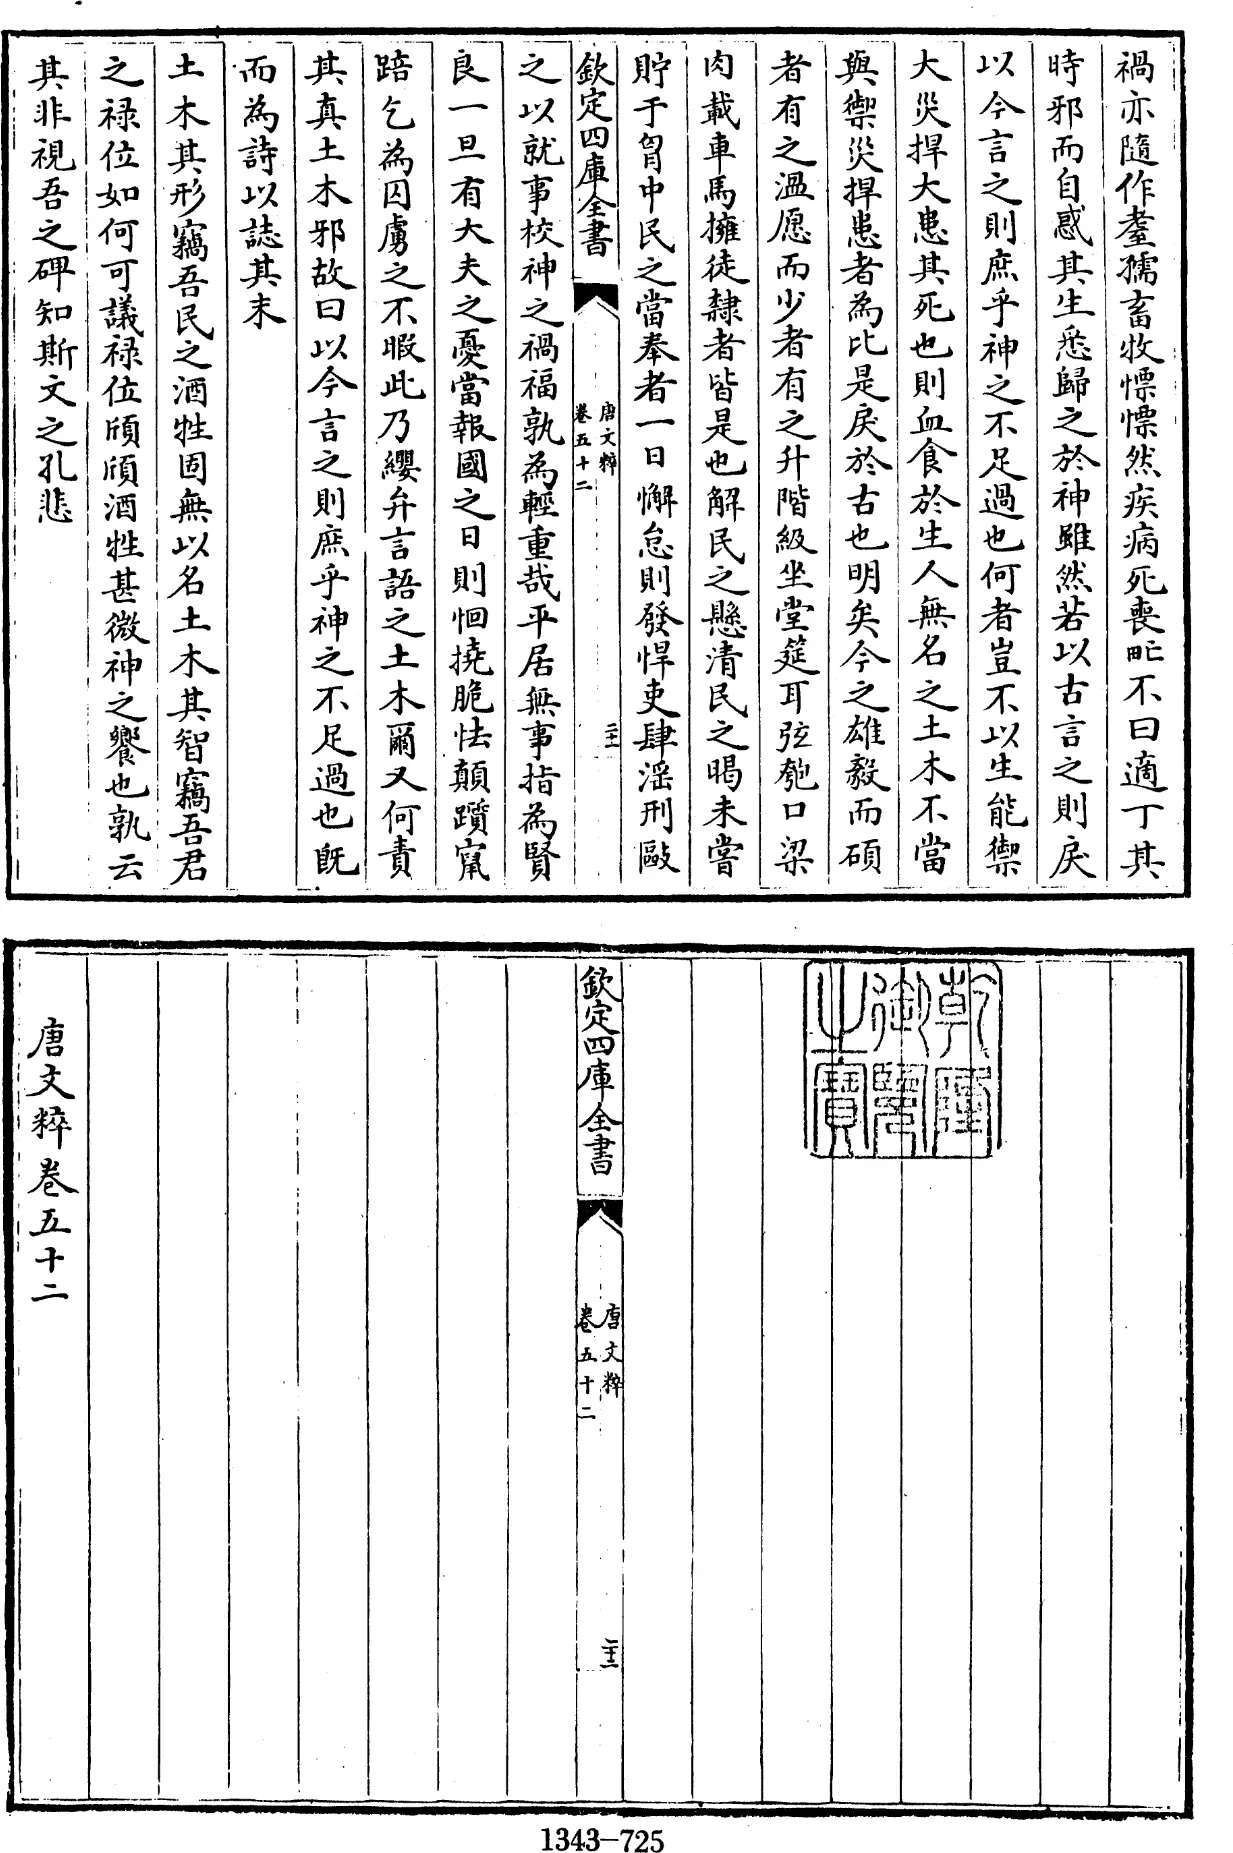 禍亦隨作耋孺畜牧慄慄然疾病死喪甿不曰適丁其
時邪而自惑其生悉歸之於神雖然若以古言之則戾
以今言之則庶乎神之不足過也何者豈不以生能禦
大災捍大患其死也則血食於生人無名之土木不當
與禦災捍患者為比是戾於古也明矣今之雄毅而碩
者有之溫愿而少者有之升階級坐堂筵耳弦匏口梁
肉載車馬擁徒隸者皆是也解民之懸清民之暍未嘗
貯于胷中民之當奉者一日懈怠則發悍吏肆淫刑毆
欽定四庫全書
唐文粹
卷五十二
之以就事校神之禍福孰為輕重哉平居無事指為賢
良一旦有大夫之憂當報國之日則恛撓脆怯顛躓竄
踣乞為囚虜之不暇此乃纓弁言語之土木爾又何責
其真土木邪故曰以今言之則庶乎神之不足過也旣
而為詩以誌其末
土木其形竊吾民之酒牲固無以名土木其智竊吾君
之祿位如何可議祿位頎頎酒牲甚微神之饗也孰云
其非視吾之碑知斯文之孔悲
乾隆
御覽
之寶
欽定四庫全書
唐文粹
卷五十二
唐文粹卷五十二
1343-725